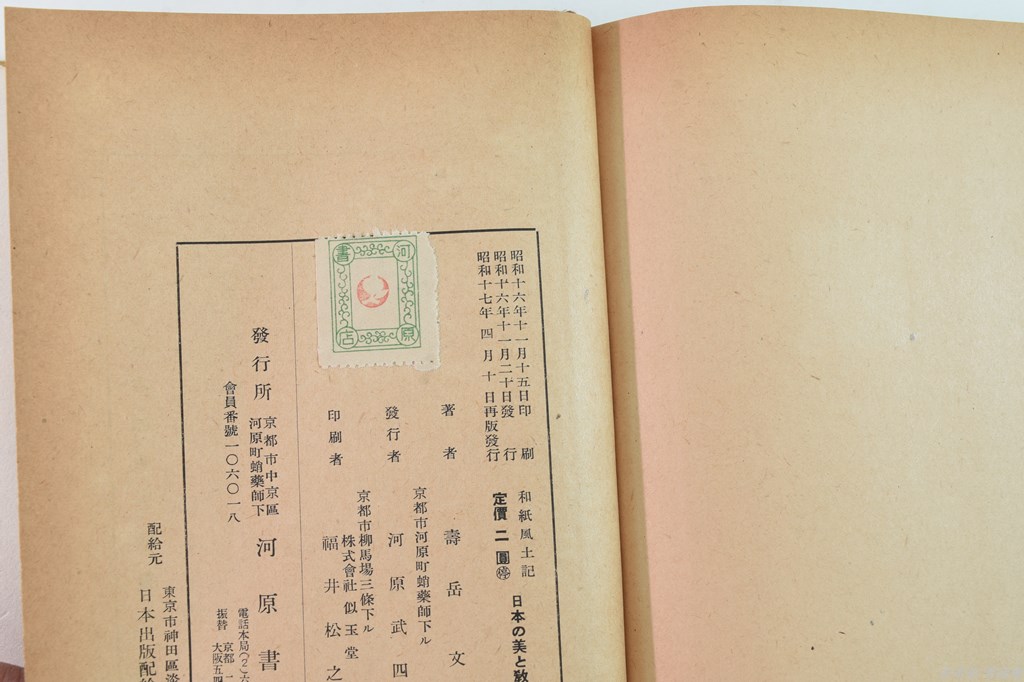 昭和十六年十一月十五日印刷
昭和十六年十一月二十日發行
昭和十七年四月十日再版發行
和紙風土記
日本の美と教
定價二圓
著者
壽岳文
發行者
京都市河原町蛸藥師下ル
河原武四
印刷者
京都市柳馬場三條下ル
株式會社似玉堂
福井松之
河原書店
發行所
京都市中京區
河原町蛸藥師下
河原書
會員番號一〇六〇一八
電話本局(2)六
振替京都一
大阪五四
配給元
東京市神田區淡
日本出版配給